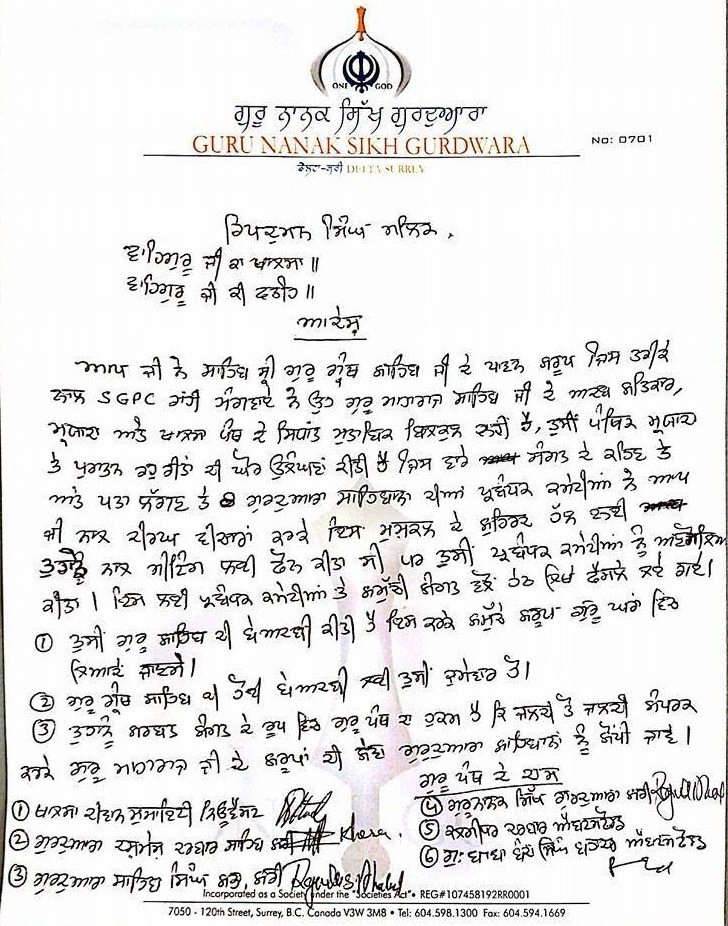 ONE GOD
ਗੁਰੂ ਨਾਨਕ ਸਿੱਖ ਗੁਰਦੁਆਰਾ
GURU NANAK SIKH GURDWARA
No: 0701
ਡੇਲਟਾ-ਸਰੀ DELTA SURREY
ਰਿਪਦੁਮਨ ਸਿੰਘ ਮਲਿਕ,
ਵਾਹਿਗੁਰੂ ਜੀ ਕਾ ਖਾਲਸਾ॥
ਵਾਹਿਗੁਰੂ ਜੀ ਕੀ ਫਤਿਹ॥
ਆਦੇਸ਼
ਆਪ ਜੀ ਨੇ ਸਾਹਿਬ ਸ੍ਰੀ ਗੁਰੂ ਗ੍ਰੰਥ ਸਾਹਿਬ ਜੀ ਦੇ ਪਾਵਨ ਸਰੂਪ ਜਿਸ ਤਰੀਕੇ
ਨਾਲ SGPC ਰਾਹੀਂ ਮੰਗਵਾਏ ਨੇ ਉਹ ਗੁਰੂ ਮਹਾਰਾਜ ਸਾਹਿਬ ਜੀ ਦੇ ਅਦਬ ਸਤਿਕਾਰ,
ਮ੍ਰਯਾਦਾ ਅਤੇ ਖਾਲਸਾ ਪੰਥ ਦੇ ਸਿਧਾਂਤ ਮੁਤਾਬਿਕ ਬਿਲਕੁਲ ਨਹੀਂ ਹੈ, ਤੁਸੀਂ ਪੰਥਿਕ ਮ੍ਰਯਾਦਾ
ਤੇ ਪੁਰਾਤਨ ਰਹੁ ਰੀਤਾਂ ਦੀ ਘੋਰ ਉਲੰਘਣਾ ਕੀਤੀ ਹੈ ਜਿਸ ਵਾਰੇ ਸੰਗਤ ਦੇ ਕਹਿਣ ਤੇ
ਅਤੇ ਪਤਾ ਲੱਗਣ ਤੇ ਗੁਰਦੁਆਰਾ ਸਾਹਿਬਾਨਾਂ ਦੀਆਂ ਪ੍ਰਬੰਧਕ ਕਮੇਟੀਆਂ ਨੇ ਆਪ
ਜੀ ਨਾਲ ਦੀਰਘ ਵੀਚਾਰਾਂ ਕਰਕੇ ਇਸ ਮੁਸ਼ਕਲ ਦੇ ਸੁਹਿਰਦ ਹੱਲ ਲਈ
ਤੁਹਾਨੂੰ ਨਾਲ ਮੀਟਿੰਗ ਲਈ ਫੋਨ ਕੀਤਾ ਸੀ ਪਰ ਤੁਸੀਂ ਪ੍ਰਬੰਧਕ ਕਮੇਟੀਆਂ ਨੂੰ ਅਣਗੌਲਿਆ
ਕੀਤਾ। ਇਸ ਲਈ ਪ੍ਰਬੰਧਕ ਕਮੇਟੀਆਂ ਤੇ ਸਮੁੱਚੀ ਸੰਗਤ ਵੱਲੋਂ ਹੇਠ ਲਿਖੇ ਫੈਸਲੇ ਲਏ ਗਏ।
① ਤੁਸੀਂ ਗੁਰੂ ਸਾਹਿਬ ਦੀ ਬੇਅਦਬੀ ਕੀਤੀ ਹੈ ਇਸ ਕਰਕੇ ਸਮੁੱਚੇ ਸਰੂਪ ਗੁਰੂ ਘਰਾਂ ਵਿਚ
ਲਿਆਏ ਜਾਣਗੇ।
② ਗੁਰੂ ਗ੍ਰੰਥ ਸਾਹਿਬ ਦੀ ਹੋਈ ਬੇਅਦਬੀ ਲਈ ਤੁਸੀਂ ਜ਼ੁਮੇਵਾਰ ਹੋ।
③ ਤੁਹਾਨੂੰ ਸਰਬਤ ਸੰਗਤ ਦੇ ਰੂਪ ਵਿਚ ਗੁਰੂ ਪੰਥ ਦਾ ਹੁਕਮ ਹੈ ਕਿ ਜਲਦੀ ਤੋਂ ਜਲਦੀ ਸੰਪਰਕ
ਕਰਕੇ ਗੁਰੂ ਮਹਾਰਾਜ ਜੀ ਦੇ ਸਰੂਪਾਂ ਦੀ ਸੇਵਾ ਗੁਰਦੁਆਰਾ ਸਾਹਿਬਾਨਾਂ ਨੂੰ ਸੌਂਪੀ ਜਾਵੇ।
ਗੁਰੂ ਪੰਥ ਦੇ ਦਾਸ
① ਖਾਲਸਾ ਦੀਵਾਨ ਸੁਸਾਇਟੀ
② ਗੁਰਦੁਆਰਾ ਦਸ਼ਮੇਸ਼ ਦਰਬਾਰ ਸਾਹਿਬ ਸਰੀ Khera
③ ਗੁਰਦੁਆਰਾ ਸਾਹਿਬ ਸਿੰਘ ਸਭਾ, ਸਰੀ
④ ਗੁਰੂ ਨਾਨਕ ਸਿੱਖ ਗੁਰਦਵਾਰਾ ਸਰੀ
⑤ ਕਲਗੀਧਰ ਦਰਬਾਰ ਐਬਟਸਫੋਰਡ
⑥ ਗੁ: ਬਾਬਾ ਬੰਦਾ ਸਿੰਘ ਬਹਾਦਰ ਐਬਟਸਫੋਰਡ
Incorporated as a Society under the "Societies Act" • REG#107458192RR0001
7050 - 120th Street, Surrey, B.C. Canada V3W 3M8 • Tel: 604.598.1300 Fax: 604.594.1669